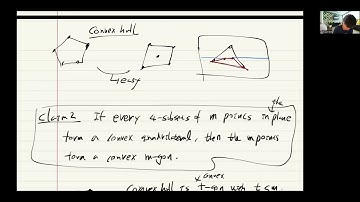 Convex hull
easy
the
Claim 2 If every 4-subset of m points in plane
form a convex quadrilateral, then the m points
form a convex m-gon.
convex
Convex hull is t-gon with t<m.